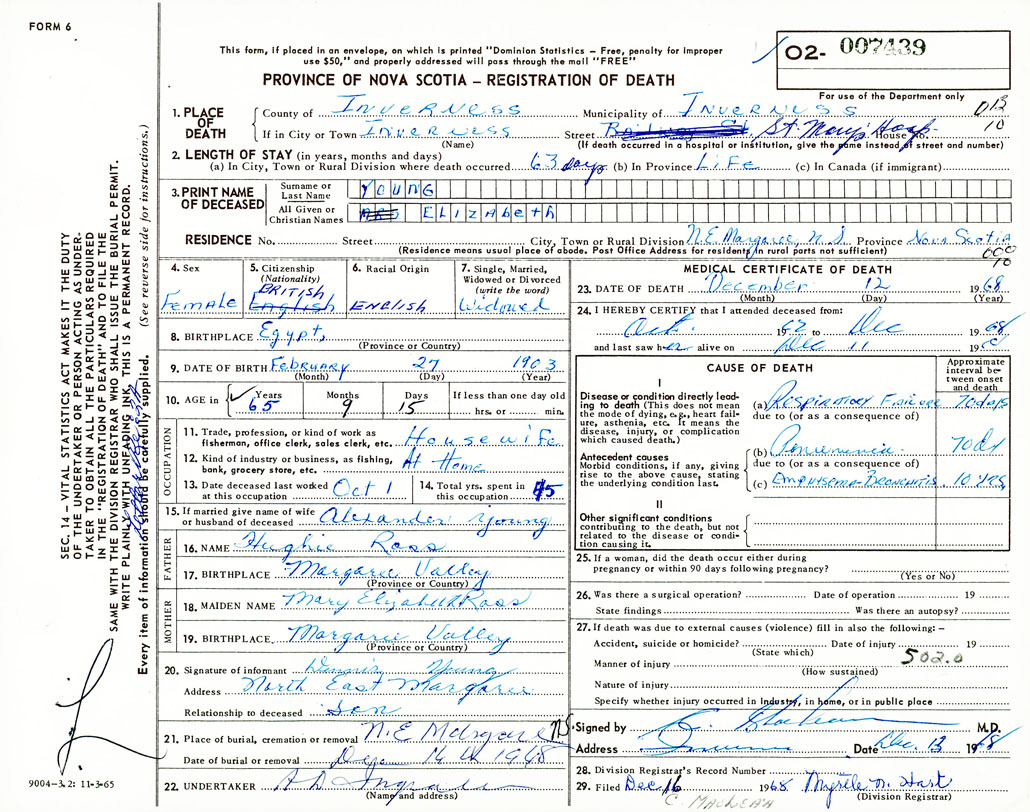 FORM 6
This form, if placed in an envelope, on which is printed "Dominion Statistics – Free, penalty for improper
use $50," and properly addressed will pass through the mail "FREE"
O2- 007439
PROVINCE OF NOVA SCOTIA – REGISTRATION OF DEATH
For use of the Department only
013
10
1. PLACE OF DEATH
County of Inverness Municipality of Inverness
If in City or Town Inverness Street St. Mary's Hosp House No.
(Name) (If death occurred in a hospital or institution, give the name instead of street and number)
2. LENGTH OF STAY (in years, months and days)
(a) In City, Town or Rural Division where death occurred 63 days (b) In Province Life (c) In Canada (if immigrant)
3. PRINT NAME OF DECEASED
Surname or Last Name YOUNG
All Given or Christian Names ELIZABETH
RESIDENCE No. Street City, Town or Rural Division N.E. Margaree, N.S. Province Nova Scotia
(Residence means usual place of abode. Post Office Address for residents in rural parts not sufficient)
4. Sex
Female
5. Citizenship
(Nationality)
BRITISH
English
6. Racial Origin
ENGLISH
7. Single, Married,
Widowed or Divorced
(write the word)
Widowed
8. BIRTHPLACE Egypt,
(Province or Country)
9. DATE OF BIRTH February 27 1903
(Month) (Day) (Year)
10. AGE in Years Months Days If less than one day old
65 9 15 hrs. or min.
OCCUPATION
11. Trade, profession, or kind of work as
fisherman, office clerk, sales clerk, etc. Housewife
12. Kind of industry or business, as fishing,
bank, grocery store, etc. At Home
13. Date deceased last worked
at this occupation Oct 1
14. Total yrs. spent in
this occupation 45
15. If married give name of wife
or husband of deceased Alexander Young
FATHER
16. NAME Hughie Ross
17. BIRTHPLACE Margaree Valley
(Province or Country)
MOTHER
18. MAIDEN NAME Mary Elizabeth Ross
19. BIRTHPLACE Margaree Valley
(Province or Country)
20. Signature of informant Dennis Young
Address North East Margaree
Relationship to deceased Son
21. Place of burial, cremation or removal N.E Margaree NS
Date of burial or removal Dec 14 th 1968
22. UNDERTAKER A D Ingraham
(Name and address)
MEDICAL CERTIFICATE OF DEATH
23. DATE OF DEATH December 12 1968
(Month) (Day) (Year)
24. I HEREBY CERTIFY that I attended deceased from:
Oct. 1967 to Dec 1968
and last saw her alive on Dec 11 1968
CAUSE OF DEATH
Approximate
interval be-
tween onset
and death
I
Disease or condition directly lead-
ing to death (This does not
mean the mode of dying, e.g., heart fail-
ure, asthenia, etc. It means the
disease, injury, or complication
which caused death.)
(a) Respiratory Failure 70 days
due to (or as a consequence of)
Antecedent causes
Morbid conditions, if any, giving
rise to the above cause, stating
the underlying condition last.
(b) Pneumonia 70 ds
due to (or as a consequence of)
(c) Emphysema-Bronchitis 10 yrs.
II
Other significant conditions
contributing to the death, but not
related to the disease or condi-
tion causing it.
25. If a woman, did the death occur either during
pregnancy or within 90 days following pregnancy?
(Yes or No)
26. Was there a surgical operation? Date of operation 19
State findings Was there an autopsy?
27. If death was due to external causes (violence) fill in also the following: –
Accident, suicide or homicide? Date of injury 19
(State which)
502.0
Manner of injury
(How sustained)
Nature of injury
Specify whether injury occurred in Industry, in home, or in public place
Signed by M.D.
Address Inverness Date Dec. 13 1968
28. Division Registrar's Record Number
29. Filed Dec 16 1968 Myrtle M. Hart
(Division Registrar)
C. MacLean
SEC. 14 – VITAL STATISTICS ACT MAKES IT THE DUTY
OF THE UNDERTAKER OR PERSON ACTING AS UNDER-
TAKER TO OBTAIN ALL THE PARTICULARS REQUIRED
IN THE "REGISTRATION OF DEATH" AND TO FILE THE
SAME WITH THE DIVISION REGISTRAR WHO SHALL ISSUE THE BURIAL PERMIT.
WRITE PLAINLY WITH UNFADING INK, THIS IS A PERMANENT RECORD.
Every item of information should be carefully supplied. (See reverse side for instructions.)
9004-3.2: 11-3-65